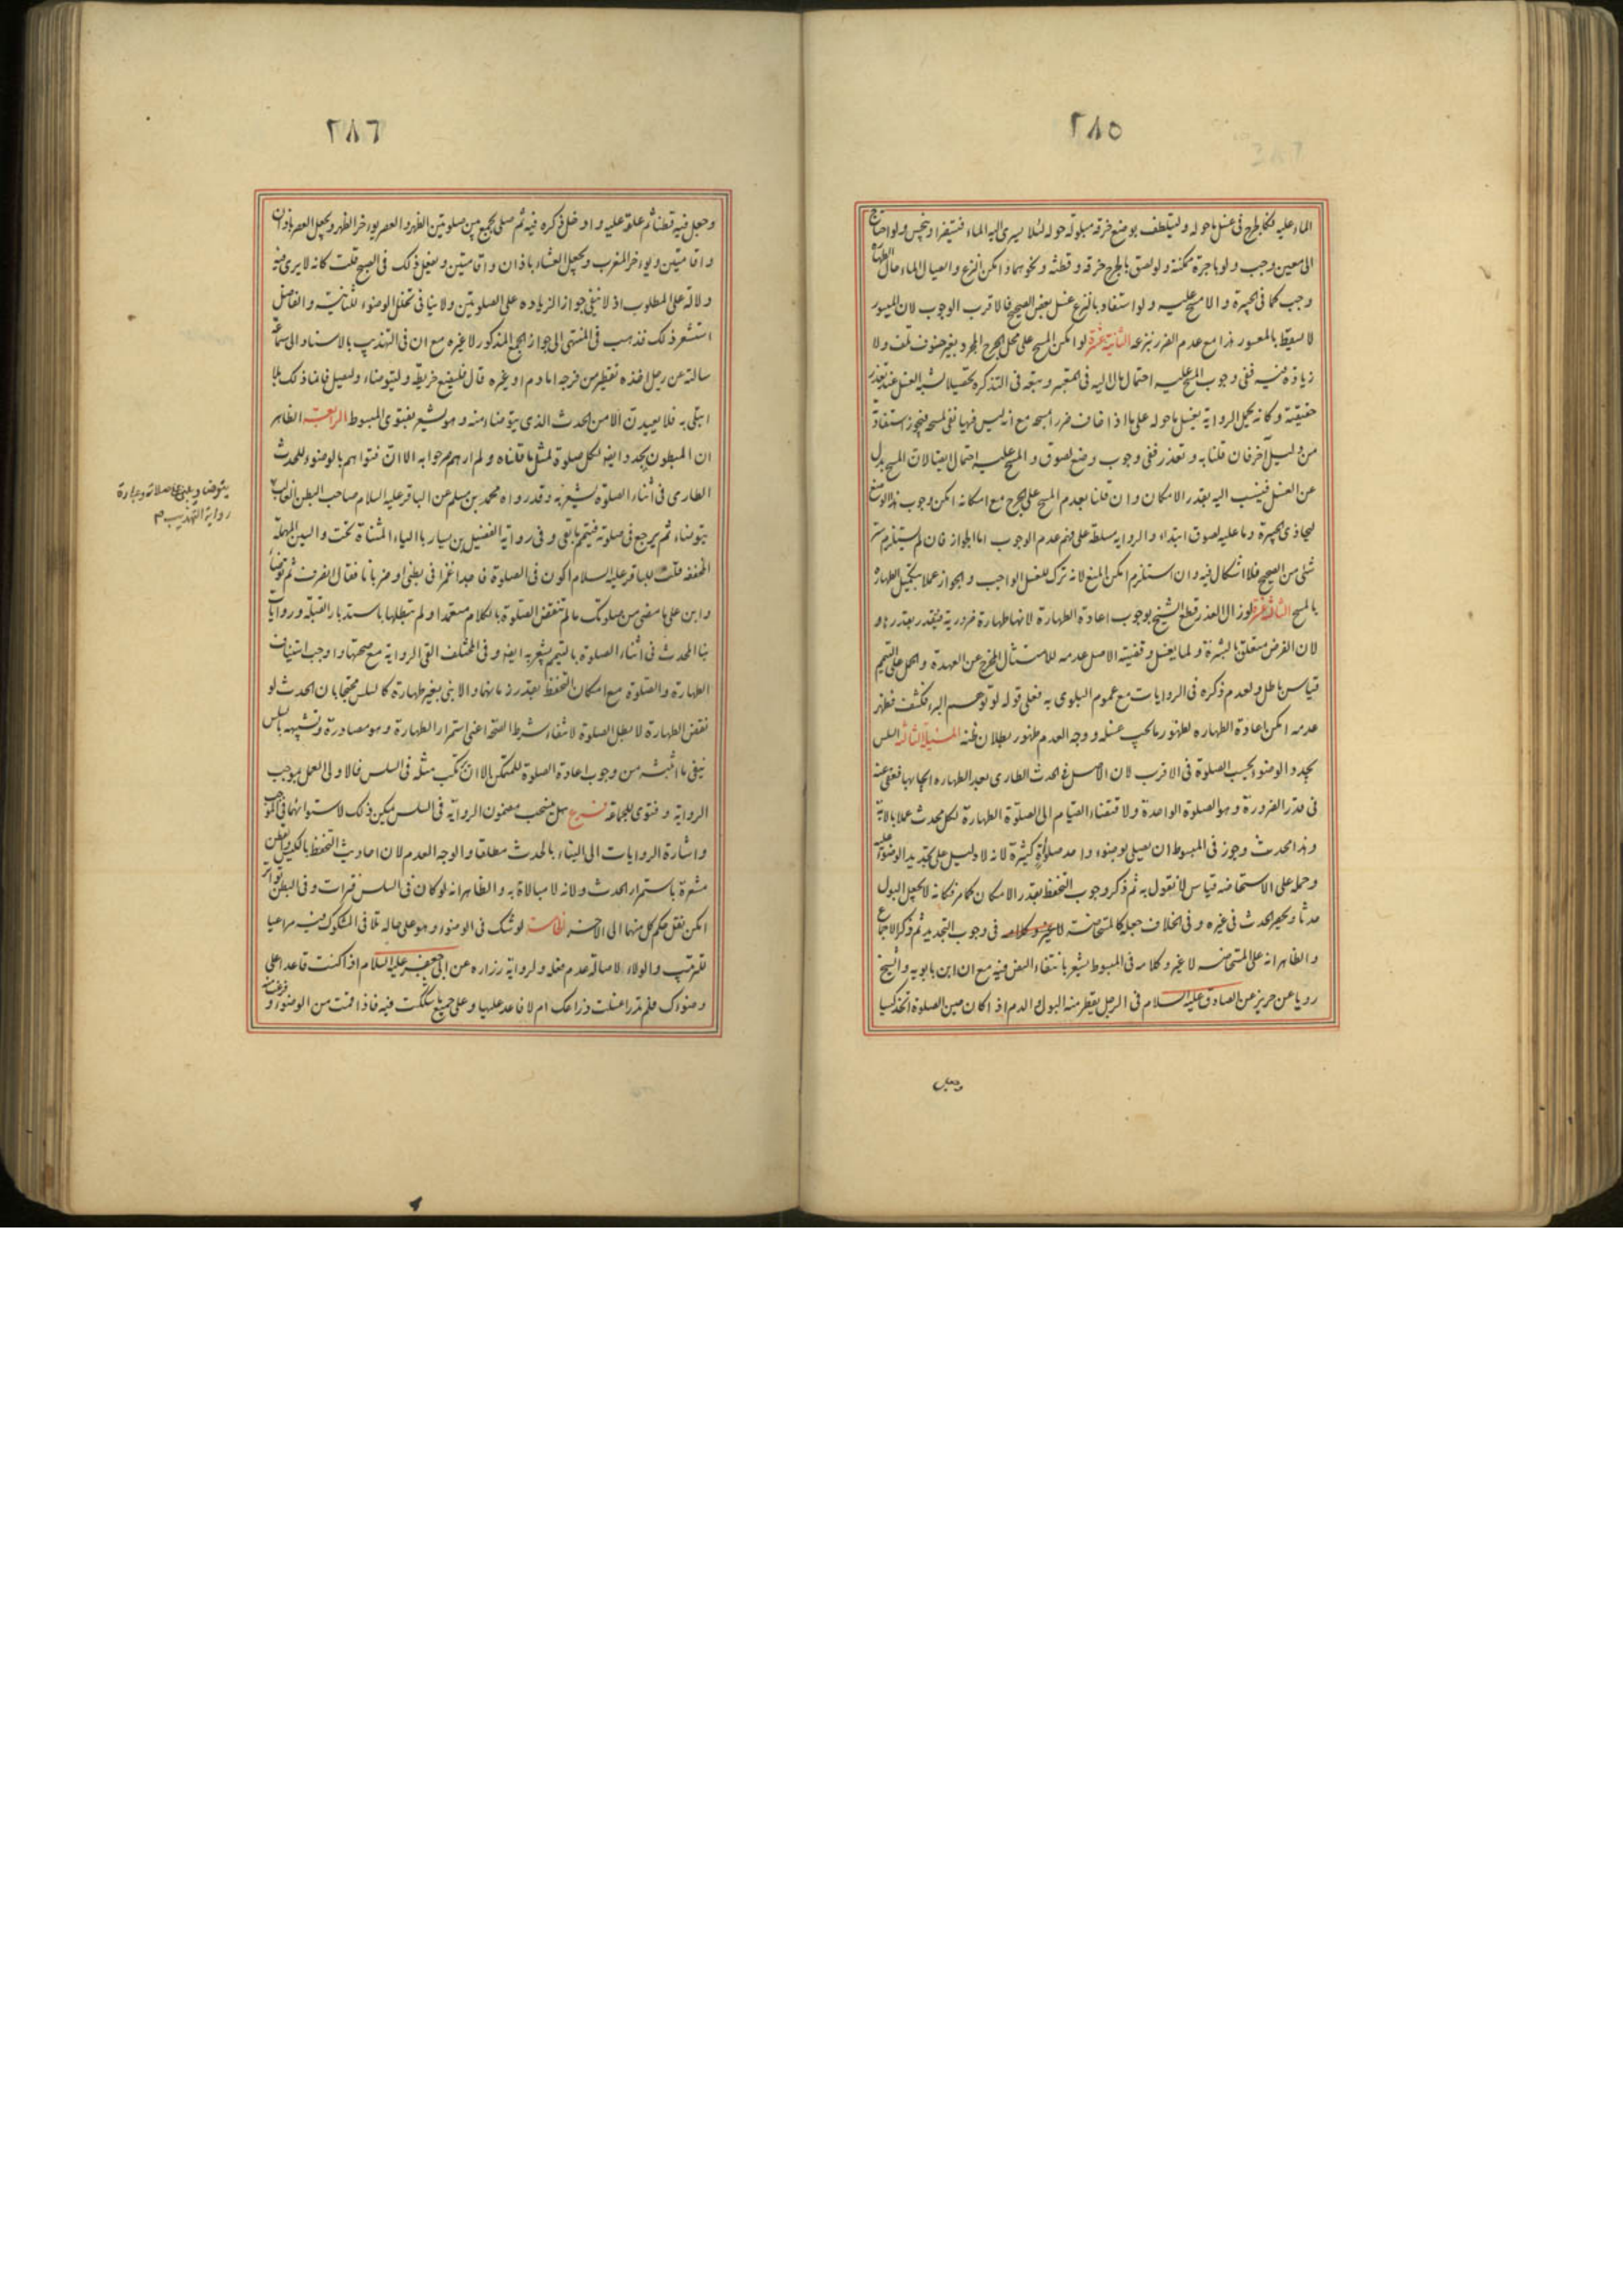 ٢٨٥
الماء عليه فكا بطرح في غسل ما حوله وليتلطف بوضع خرقة مبلولة حوله لئلا يسرى اليه الماء فيتضرا وينجس ولو احتاج
الى معين وجب ولو باجرة ممكنة ولو لصق بالجرح خرقة وقطنة ونحوهما وامكن النزع وايصال الماء حال الطهارة
وجب كما في الجبيرة والا مسح عليه ولو استفاد بالنزع غسل بعض الصحيح فالاقرب الوجوب لان الميسور
لا يسقط بالمعسور هذا مع عدم الضرر بنزعه الثانية عشرة لو امكن المسح على محل الجرح المجرد بغير خوف تلف ولا
زيادة فيه ففي وجوب المسح عليه احتمال مال اليه في المعتبر وتبعه في التذكرة تحصيلا لشبه الغسل عند تعذر
حقيقته وكانه يحمل الرواية بغسل ما حوله على ما اذا خاف ضررا بمسحه مع انه ليس فيها نفي لمسحه فيجوز استفادته
من دليل آخر فان قلنا به وتعذر ففي وجوب وضع لصوق والمسح عليه احتمال ايضا لان المسح بدل
عن الغسل فينسب اليه بقدر الامكان وان قلنا بعدم المسح على الجرح مع امكانه امكن وجوب هذا الوضع
ليحاذي الجبيرة وما عليه لصوق ابتداء والرواية مسلطة على فهم عدم الوجوب اما الجواز فان لم يستلزم ستر
شئ من الصحيح فلا اشكال فيه وان استلزم امكن المنع لانه ترك للغسل الواجب والجواز عملا بتكميل الطهارة
بالمسح الثالثة عشرة لو زال العذر قطع الشيخ بوجوب اعادة الطهارة لانها طهارة ضرورية فيتقدر بقدرها و
لان الفرض متعلق بالبشرة ولما يغسل وقضيته الاصل عدمه للامتثال المخرج عن العهدة والحمل على التيمم
قياس باطل ولعدم ذكره في الروايات مع عموم البلوى به فعلى قوله لو توهم البرء فكشف فظهر
عدمه امكن اعادة الطهارة لظهور ما يجب غسله ووجه العدم ظهور بطلان ظنه المسئلة الثالثة السلس
يجدد الوضوء بحسب الصلوة في الاقرب لان الاصل في الحدث الطارى بعد الطهارة ايجابها فعفى عنه
في قدر الضرورة وهو الصلوة الواحدة ولاقتضاء القيام الى الصلوة الطهارة لكل محدث عملا بالاية
وهذا محدث وجوز في المبسوط ان يصلى بوضوء واحد صلوات كثيرة لانه لا دليل على تجديد الوضوء عليه
وحمله على الاستحاضة قياس لا نقول به ثم ذكر وجوب التحفظ بقدر الامكان كما مر فكانه لا يجعل البول
حدثا ويحصر الحدث في غيره وفي الخلاف جعله كالمستحاضة في وجوب التجديد ثم ذكر الاجماع
والظاهر انه على المستحاضة لا غير وكلامه في المبسوط يشعر بانتفاء النص فيه مع ان ابن بابويه والشيخ
رويا عن حريز عن الصادق عليه السلام في الرجل يقطر منه البول والدم اذا كان حين الصلوة اتخذ كيسا
وجعل
٢٨٦
وجعل فيه قطنا ثم علقه عليه وادخل ذكره فيه ثم صلى يجمع بين صلوتين الظهر والعصر يوءخر الظهر ويعجل العصر باذان
واقامتين ويوءخر المغرب ويعجل العشاء باذان واقامتين ويفعل ذلك في الصبح قلت كانه لا يرى فيه
دلالة على المطلوب اذ لا ينفي جواز الزيادة على الصلوتين ولا ينافي تخلل الوضوء للثانية والفاضل
استشعر ذلك فذهب في المنتهى الى جواز الجمع المذكور لا غيره مع ان في التهذيب بالاسناد الى سماعة
سالته عن رجل اخذه تقطير من فرجه اما دم او غيره قال فليضع خريطة وليتوضاء وليصل فانما ذلك بلاء
ابتلى به فلا يعيدن الا من الحدث الذي يتوضاء منه وهو يشعر بفتوى المبسوط الرابعة الظاهر
ان المبطون يجدد ايضا لكل صلوة لمثل ما قلناه ولم ارهم صرحوا به الا ان فتواهم بالوضوء للحدث
الطارى في أثناء الصلوة يشعر به وقد رواه محمد بن مسلم عن الباقر عليه السلام صاحب البطن الغالب
يتوضاء ثم يرجع في صلوته فيتمم ما بقى وفي رواية الفضيل بن يسار بالياء المثناة تحت والسين المهملة
المخففة قلت للباقر عليه السلام اكون في الصلوة فاجد اغمزا في بطني او ضربانا فقال انصرف ثم توضأ
وابن على ما مضى من صلوتك ما لم تنقض الصلوة بالكلام متعمدا ولم يبطلها باستدبار القبلة وروايات
بناء المحدث في اثناء الصلوة بالتيمم يشعر به ايضا وفي المختلف القى الرواية مع صحتها واوجب استيناف
الطهارة والصلوة مع امكان التحفظ بقدر زمانهما والا بنى بغير طهارة كالسلس محتجا بان الحدث لو
نقض الطهارة لابطل الصلوة لانتفاء شرط الصحة اعني استمرار الطهارة وهو مصادرة وتشبيهه بالسلس
ينفي ما اثبته من وجوب اعادة الصلوة للمتمكن الا ان يرتكب مثله في السلس فالاولى العمل بموجب
الرواية وفتوى الجماعة فرع هل ينسحب مضمون الرواية في السلس يمكن ذلك لاستوائهما في الموجب
واشارة الروايات الى البناء بالحدث مطلقا والوجه العدم لان احاديث التحفظ بالكيس والقطن
مشعرة باستمرار الحدث ولانه لا مبالاة به والظاهر انه لو كان في السلس فترات وفي البطن تواتر
امكن نقل حكم كل منهما الى الآخر الخامسة لو شك في الوضوء وهو على حاله تلافي المشكوك فيه مراعيا
للترتيب والولاء لاصالة عدم فعله ولرواية زرارة عن ابي جعفر عليه السلام اذا كنت قاعدا على
وضوئك فلم تدر اغسلت ذراعك ام لا فاعد عليها وعلى جميع ما شككت فيه فاذا قمت من الوضوء و فرغت منه
يتوضأ ويبني على صلاته وعبارة
رواية التهذيب